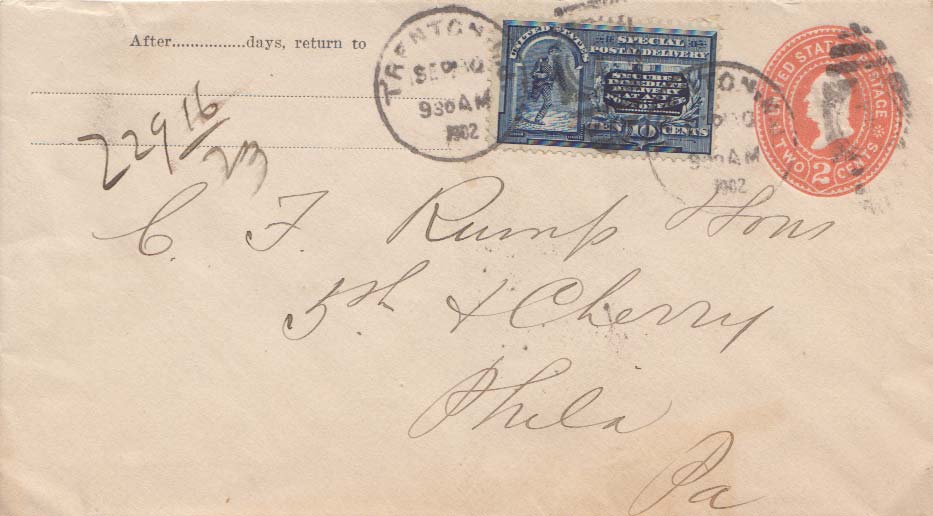 After................days, return to
TRENTON
SEP 30
930 AM
1902
UNITED STATES
SPECIAL
POSTAL DELIVERY
SECURES
IMMEDIATE
DELIVERY
AT ANY
OFFICE
TEN 10 CENTS
930 AM
1902
UNITED STATES POSTAGE
TWO 2 CENTS
22916/23
C. F. Rump & Sons
5th & Cherry
Phila
Pa